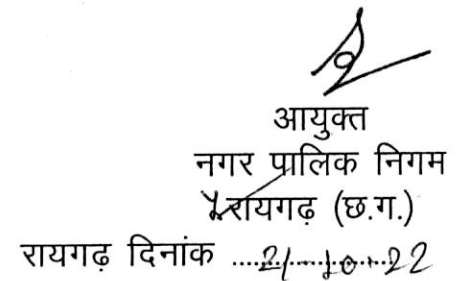 आयुक्त
नगर पालिक निगम
रायगढ़ (छ.ग.)
रायगढ़ दिनांक ....21-10-22